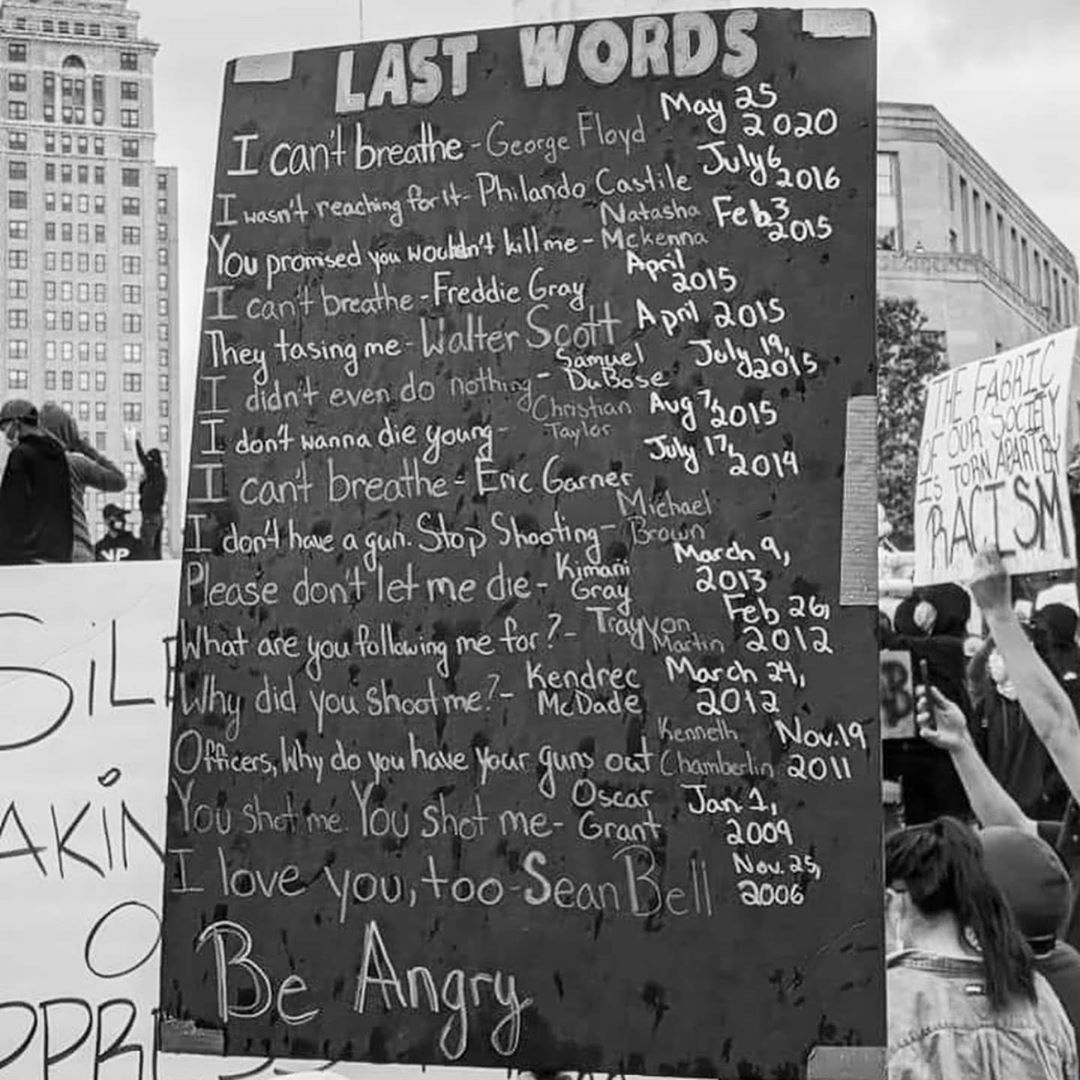 LAST WORDS
I can't breathe - George Floyd May 25 2020
I wasn't reaching for it - Philando Castile July 6 2016
You promised you wouldn't kill me - Natasha Mckenna Feb 3 2015
I can't breathe - Freddie Gray April 2015
They tasing me - Walter Scott April 2015
I didn't even do nothing - Samuel DuBose July 19, 2015
I don't wanna die young - Christian Taylor Aug 7, 2015
I can't breathe - Eric Garner July 17, 2014
I don't have a gun. Stop Shooting - Michael Brown
Please don't let me die - Kimani Gray March 9, 2013
What are you following me for? - Trayvon Martin Feb 26, 2012
Why did you shoot me? - Kendrec McDade March 24, 2012
Officers, Why do you have your guns out Kenneth Chamberlin Nov. 19 2011
You shot me. You shot me - Oscar Grant Jan. 1, 2009
I love you, too - Sean Bell Nov. 25, 2006
Be Angry
THE FABRIC
OF OUR SOCIETY
IS TORN APART BY
RACISM
SILE
AKIN
O
PPRESS